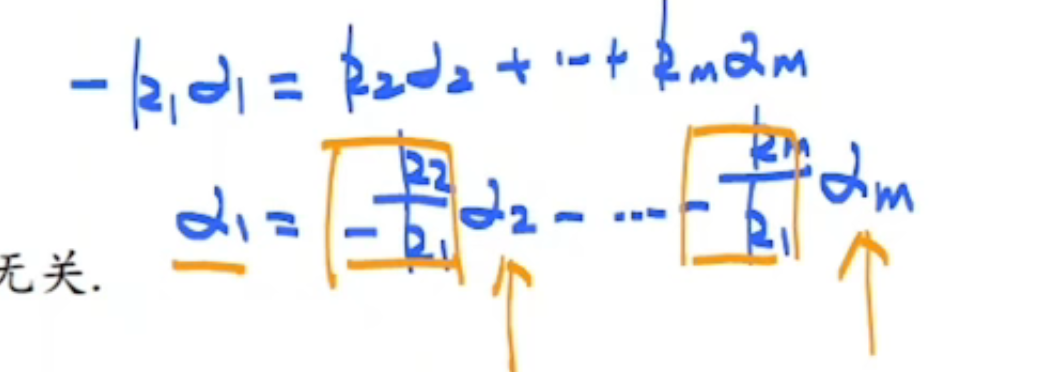 -k₁α₁ = k₂α₂ + ... + kₘαₘ
α₁ = -k₂/k₁ α₂ - ... - kₘ/k₁ αₘ
无关.